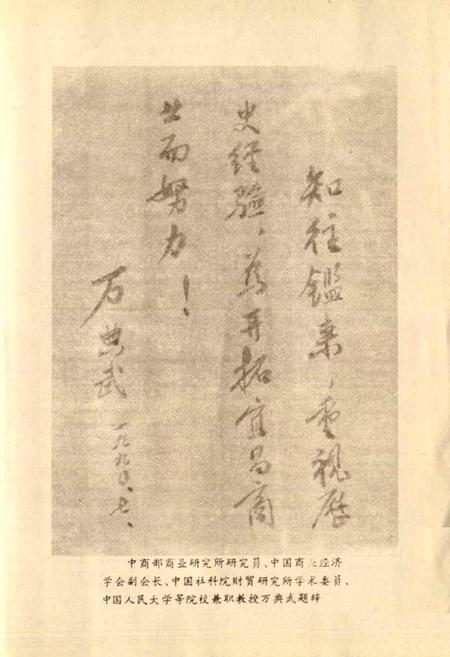 知往鑑来,重视历
史经验,为开拓宜昌商
业而努力!
万典武
一九九〇、七、
中商部商业研究所研究员、中国商业经济
学会副会长、中国社科院财贸研究所学术委员、
中国人民大学等院校兼职教授万典武题辞